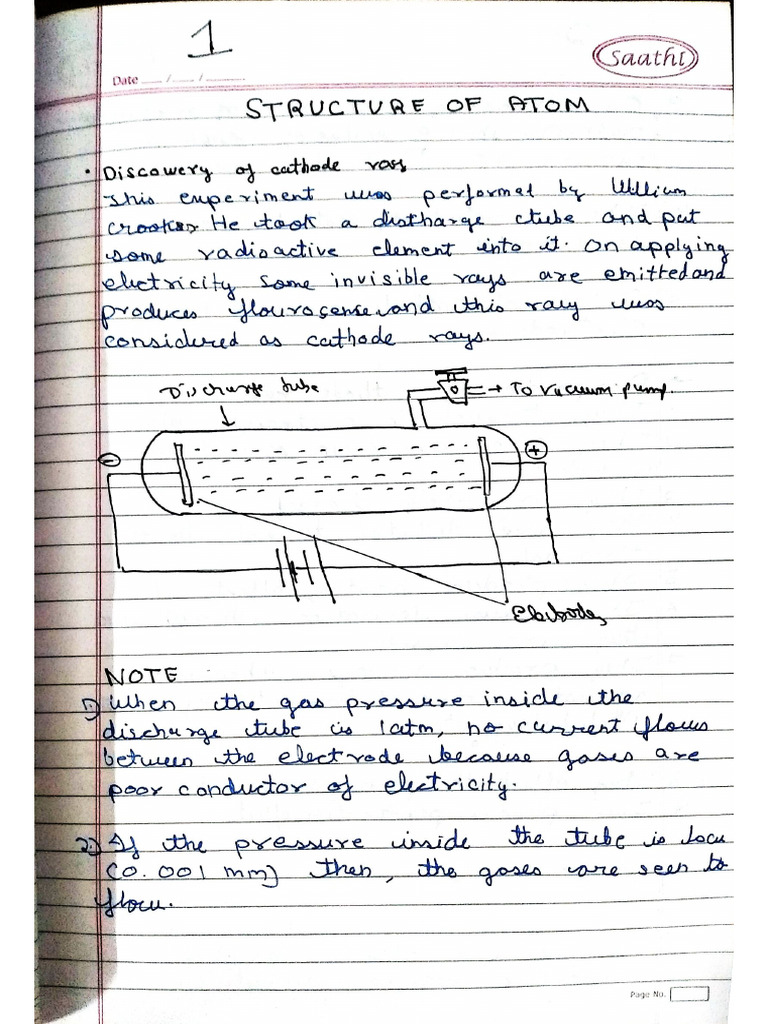 1
Saathi
Date ___/___/______
STRUCTURE OF ATOM
• Discowery of cathode rays
This experiment was performed by William
Crookes, He took a distharge tube and put
some radioactive element into it. On applying
electricity some invisible rays are emitted and
produces flourosense and this ray was
considered as cathode rays.
Discharge tube
→ To vacuum pump.
-
+
Electrodes
NOTE
1) When the gas pressure inside the
discharge tube is 1atm, no current flows
between the electrode because gases are
poor conductor of electricity.
2) If the pressure inside the tube is low
(0.001 mm) then, the gases are seen to
flow.
Page No.